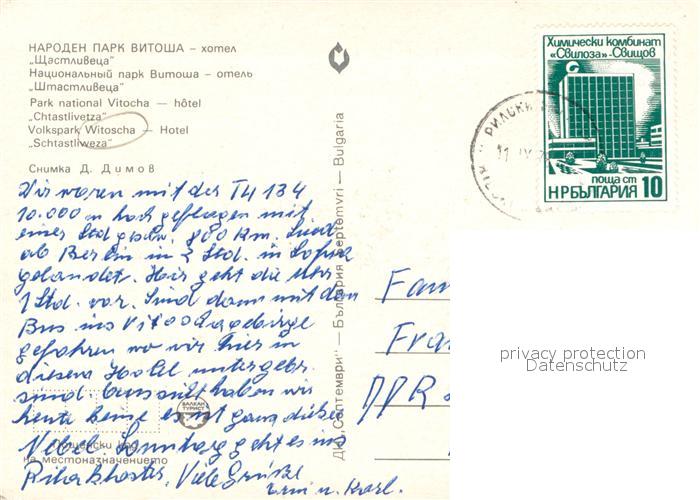 НАРОДЕН ПАРК ВИТОША – хотел
„Щастливеца"
Национальный парк Витоша – отель
„Штастливеца"
Park national Vitocha – hôtel
„Chtastlivetza"
Volkspark Witoscha – Hotel
„Schtastliweza"
Снимка Д. Димов
Wir waren mit der TU 134
10.000 m hoch geflogen mit
einer Std geschw. 800 Km. Sind
ab Berlin in 2 Std. in Sofia
gelandet. Hier geht die Uhr
1 Std. vor. Sind dann mit dem
Bus ins Vitoschagebirge
gefahren wo wir hier in
diesem Hotel untergebr.
sind. Aussicht haben wir
heute keine es ist ganz dicker
Nebel. Sonntag geht es ins
Rilakloster. Viele Grüße
u. Karl.
Пощенски код
на местоназначението
БАЛКАН
ТУРИСТ
ДИ „Септември" — България Septemvri — Bulgaria
Химически комбинат
«Свилоза»-Свищов
поща ст
НР БЪЛГАРИЯ 10
РИЛСКИ
11
Fam
Fra
DDR
privacy protection
Datenschutz